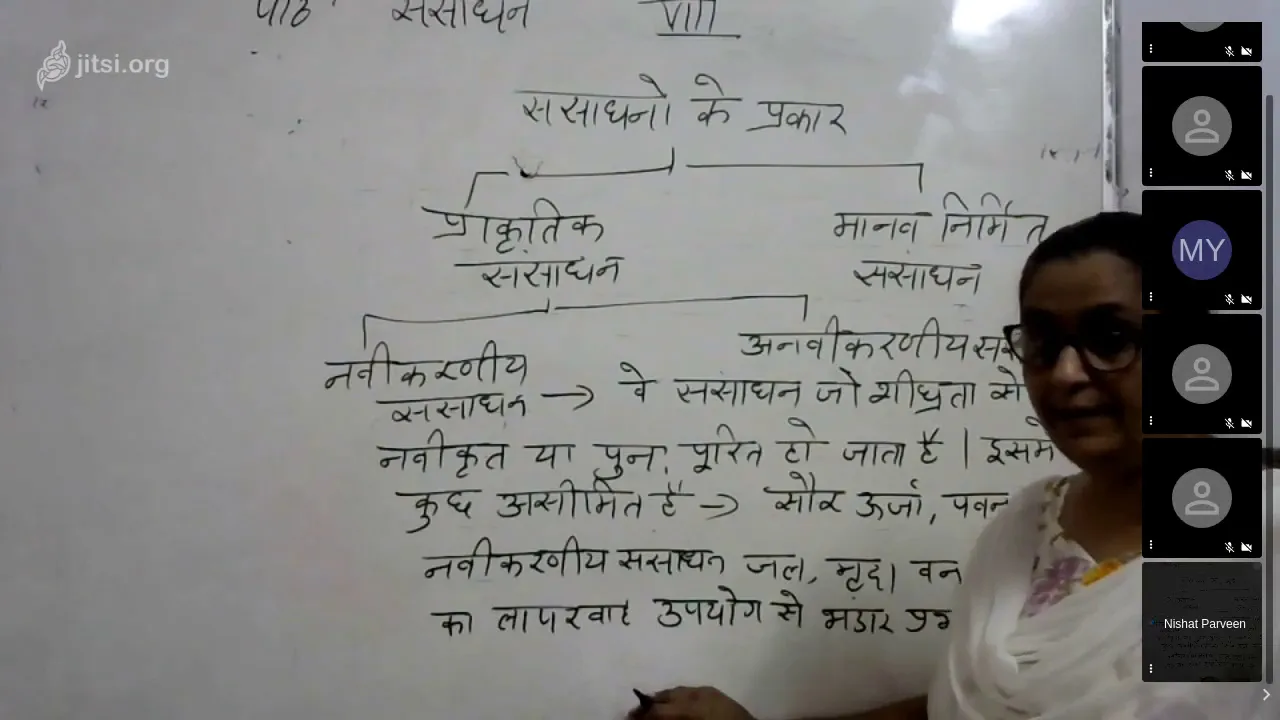 पाठ संसाधन VIII
jitsi.org
संसाधनो के प्रकार
प्राकृतिक मानव निर्मित
संसाधन संसाधन
अनवीकरणीय
नवीकरणीय
संसाधन → वे संसाधन जो शीघ्रता से
नवीकृत या पुन: पूरित हो जाता है । इसमे
कुछ असीमित है → सौर ऊर्जा, पवन
नवीकरणीय संसाधन जल, मृदा वन
का लापरवाह उपयोग से भंडार
MY
Nishat Parveen